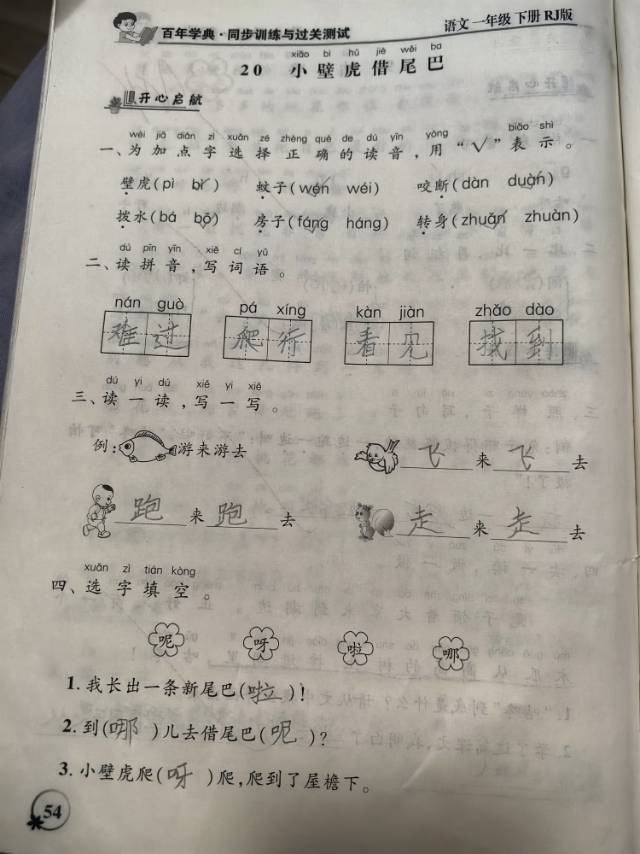 百年学典·同步训练与过关测试 语文 一年级 下册 RJ版
xiǎo bì hǔ jiè wěi ba
20 小壁虎借尾巴
开心启航
wèi jiā diǎn zì xuǎn zé zhèng què de dú yīn yòng biǎo shì
一、为加点字选择正确的读音,用“√”表示。
壁虎(pì bì√) 蚊子(wén√ wéi) 咬断(dàn duàn√)
拨水(bá bō√) 房子(fáng√ háng) 转身(zhuǎn√ zhuàn)
dú pīn yīn xiě cí yǔ
二、读拼音,写词语。
nán guò pá xíng kàn jiàn zhǎo dào
难过 爬行 看见 找到
dú yi dú xiě yi xiě
三、读一读,写一写。
例: 游来游去 飞来飞去
跑来跑去 走来走去
xuǎn zì tián kòng
四、选字填空。
呢 呀 啦 哪
1. 我长出一条新尾巴(啦)!
2. 到(哪)儿去借尾巴(呢)?
3. 小壁虎爬(呀)爬,爬到了屋檐下。
54